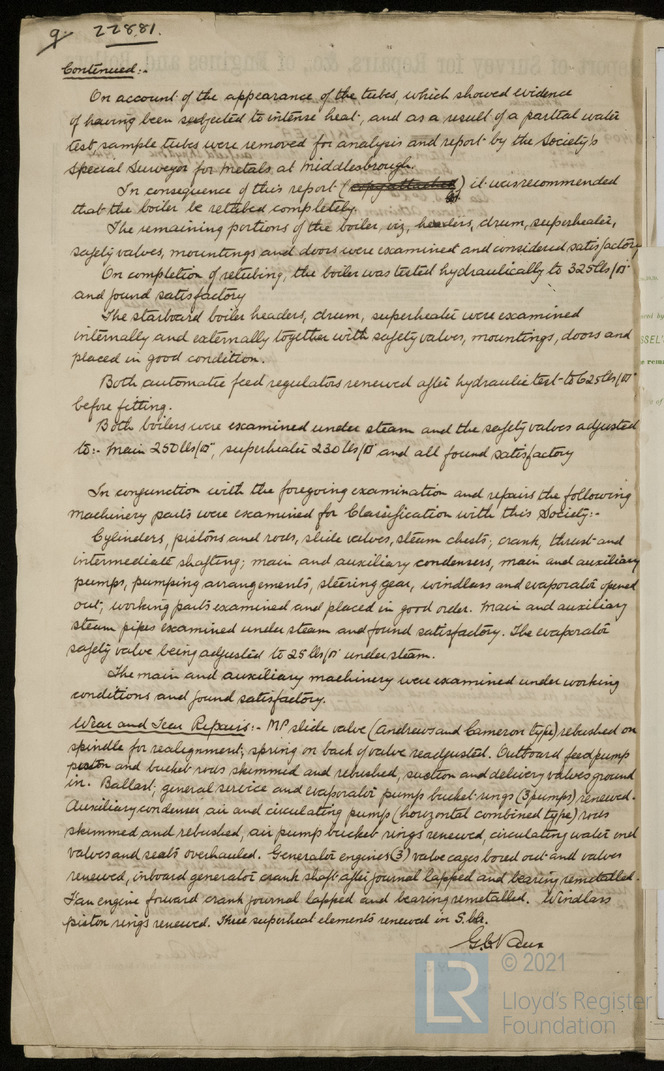 9. 22881.
Continued:-
On account of the appearance of the tubes, which showed evidence
of having been subjected to intense heat, and as a result of a partial water
test sample tubes were removed for analysis and report by the Society's
Special Surveyor for Metals, at Middlesbrough.
In consequence of this report (copy attached) it was recommended
that the boiler be retubed completely.
The remaining portions of the boiler, viz, headers, drum, superheater,
safety valves, mountings and doors were examined and considered satisfactory
On completion of retubing, the boiler was tested hydraulically to 325 lbs/□"
and found satisfactory
The starboard boiler headers, drum, superheater were examined
internally and externally together with safety valves, mountings, doors and
placed in good condition.
Both automatic feed regulators renewed after hydraulic test to 625 lbs/□"
before fitting.
Both boilers were examined under steam and the safety valves adjusted
to:- Main 250 lbs/□", superheater 230 lbs/□" and all found satisfactory
In conjunction with the foregoing examination and repairs the following
machinery parts were examined for Classification with this Society:-
Cylinders, pistons and rods, slide valves, steam chests; crank, thrust and
intermediate shafting; main and auxiliary condensers, main and auxiliary
pumps, pumping arrangements, steering gear, windlass and evaporator opened
out, working parts examined and placed in good order. Main and auxiliary
steam pipes examined under steam and found satisfactory. The evaporator
safety valve being adjusted to 25 lbs/□" under steam.
The main and auxiliary machinery were examined under working
conditions and found satisfactory.
Wear and Tear Repairs:- MP slide valve (Andrews and Cameron type) rebushed on
spindle for realignment, spring on back of valve readjusted. Outboard feed pump
piston and bucket rods skimmed and rebushed, suction and delivery valves ground
in. Ballast, general service and evaporator pumps bucket rings (3 pumps) renewed.
Auxiliary condenser air and circulating pump (horizontal combined type) rods
skimmed and rebushed, air pump bucket rings renewed, circulating water end
valves and seats overhauled. Generator engines (3) valve cages bored out and valves
renewed, inboard generator crank shaft after journal lapped and bearing remetalled.
Fan engine forward crank journal lapped and bearing remetalled. Windlass
piston rings renewed. Three superheat elements renewed in S. blr.
© 2021
LR Lloyd's Register
Foundation